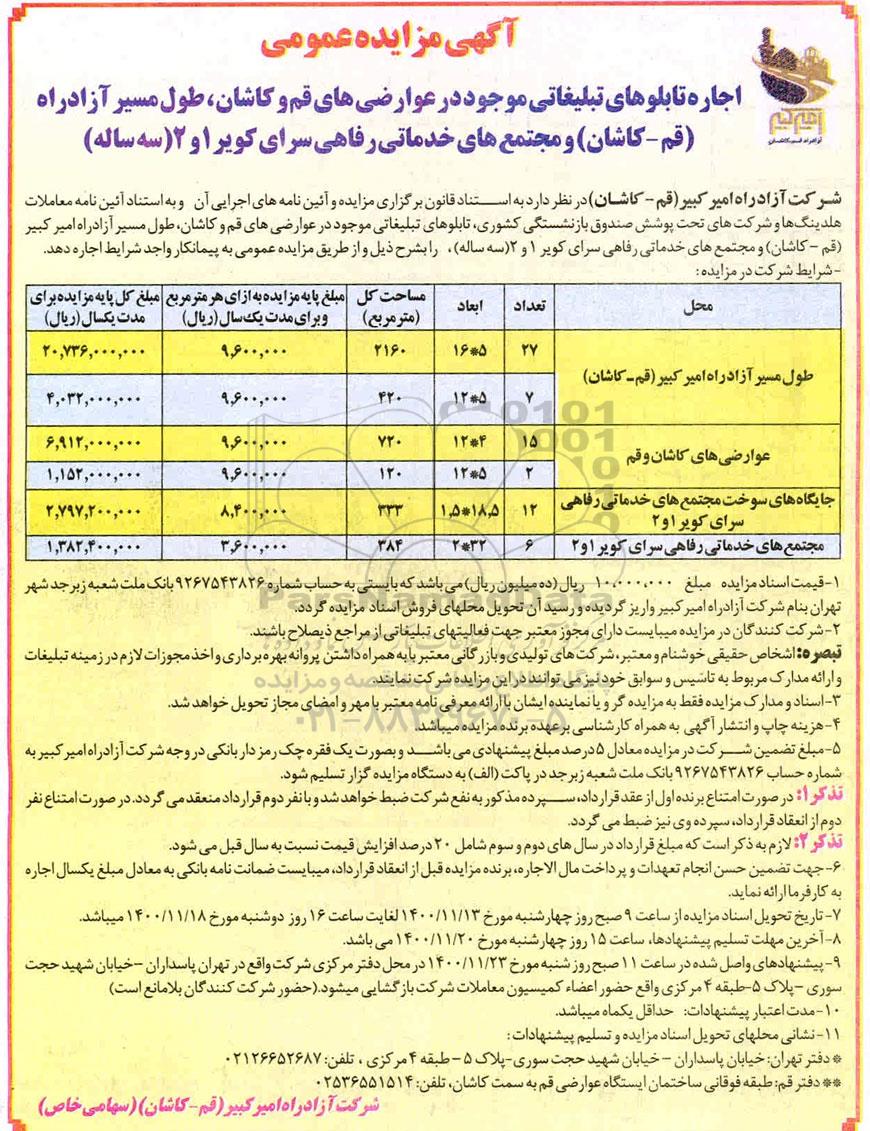 آگهی مزایده عمومی
امیرکبیر
آزادراه قم-کاشان
اجاره تابلوهای تبلیغاتی موجود در عوارضی های قم و کاشان، طول مسیر آزادراه
(قم - کاشان) و مجتمع های خدماتی رفاهی سرای کویر ۱ و ۲ (سه ساله)
شرکت آزادراه امیر کبیر (قم - کاشان) در نظر دارد به استناد قانون برگزاری مزایده و آئین نامه های اجرایی آن و به استناد آئین نامه معاملات
هلدینگ‌ها و شرکت های تحت پوشش صندوق بازنشستگی کشوری، تابلوهای تبلیغاتی موجود در عوارضی های قم و کاشان، طول مسیر آزادراه امیر کبیر
(قم - کاشان) و مجتمع های خدماتی رفاهی سرای کویر ۱ و ۲ (سه ساله)، را بشرح ذیل و از طریق مزایده عمومی به پیمانکار واجد شرایط اجاره دهد.
- شرایط شرکت در مزایده:
محل تعداد ابعاد مساحت کل (متر مربع) مبلغ پایه مزایده به ازای هر متر مربع و برای مدت یک سال (ریال) مبلغ کل پایه مزایده برای مدت یکسال (ریال)
طول مسیر آزادراه امیر کبیر (قم - کاشان) ۲۷ ۵*۱۶ ۲۱۶۰ ۹,۶۰۰,۰۰۰ ۲۰,۷۳۶,۰۰۰,۰۰۰
۷ ۵*۱۲ ۴۲۰ ۹,۶۰۰,۰۰۰ ۴,۰۳۲,۰۰۰,۰۰۰
عوارضی های کاشان و قم ۱۵ ۴*۱۲ ۷۲۰ ۹,۶۰۰,۰۰۰ ۶,۹۱۲,۰۰۰,۰۰۰
۲ ۵*۱۲ ۱۲۰ ۹,۶۰۰,۰۰۰ ۱,۱۵۲,۰۰۰,۰۰۰
جایگاه های سوخت مجتمع های خدماتی رفاهی سرای کویر ۱ و ۲ ۱۲ ۱۸,۵*۱,۵ ۳۳۳ ۸,۴۰۰,۰۰۰ ۲,۷۹۷,۲۰۰,۰۰۰
مجتمع های خدماتی رفاهی سرای کویر ۱ و ۲ ۶ ۳۲*۲ ۳۸۴ ۳,۶۰۰,۰۰۰ ۱,۳۸۲,۴۰۰,۰۰۰
۱- قیمت اسناد مزایده مبلغ ۱۰,۰۰۰,۰۰۰ ریال (ده میلیون ریال) می باشد که بایستی به حساب شماره ۹۲۶۷۵۴۳۸۲۶ بانک ملت شعبه زبرجد شهر
تهران بنام شرکت آزادراه امیر کبیر واریز گردیده و رسید آن تحویل محلهای فروش اسناد مزایده گردد.
۲- شرکت کنندگان در مزایده میبایست دارای مجوز معتبر جهت فعالیتهای تبلیغاتی از مراجع ذیصلاح باشند.
تبصره: اشخاص حقیقی خوشنام و معتبر، شرکت های تولیدی و بازرگانی معتبر با به همراه داشتن پروانه بهره برداری و اخذ مجوزات لازم در زمینه تبلیغات
و ارائه مدارک مربوط به تاسیس و سوابق خود نیز می توانند در این مزایده شرکت نمایند.
۳- اسناد و مدارک مزایده فقط به مزایده گر و یا نماینده ایشان با ارائه معرفی نامه معتبر با مهر و امضای مجاز تحویل خواهد شد.
۴- هزینه چاپ و انتشار آگهی به همراه کارشناسی بر عهده برنده مزایده میباشد.
۵- مبلغ تضمین شرکت در مزایده معادل ۵ درصد مبلغ پیشنهادی می باشد و بصورت یک فقره چک رمز دار بانکی در وجه شرکت آزادراه امیر کبیر به
شماره حساب ۹۲۶۷۵۴۳۸۲۶ بانک ملت شعبه زبرجد در پاکت (الف) به دستگاه مزایده گزار تسلیم شود.
تذکر ۱: در صورت امتناع برنده اول از عقد قرارداد، سپرده مذکور به نفع شرکت ضبط خواهد شد و با نفر دوم قرارداد منعقد می گردد. در صورت امتناع نفر
دوم از انعقاد قرارداد، سپرده وی نیز ضبط می گردد.
تذکر ۲: لازم به ذکر است که مبلغ قرارداد در سال های دوم و سوم شامل ۲۰ درصد افزایش قیمت نسبت به سال قبل می شود.
۶- جهت تضمین حسن انجام تعهدات و پرداخت مال الاجاره، برنده مزایده قبل از انعقاد قرارداد، میبایست ضمانت نامه بانکی به معادل مبلغ یکسال اجاره
به کارفرما ارائه نماید.
۷- تاریخ تحویل اسناد مزایده از ساعت ۹ صبح روز چهارشنبه مورخ ۱۴۰۰/۱۱/۱۳ لغایت ساعت ۱۶ روز دوشنبه مورخ ۱۴۰۰/۱۱/۱۸ میباشد.
۸- آخرین مهلت تسلیم پیشنهادها، ساعت ۱۵ روز چهارشنبه مورخ ۱۴۰۰/۱۱/۲۰ می باشد.
۹- پیشنهادهای واصل شده در ساعت ۱۱ صبح روز شنبه مورخ ۱۴۰۰/۱۱/۲۳ در محل دفتر مرکزی شرکت واقع در تهران پاسداران - خیابان شهید حجت
سوری - پلاک ۵ - طبقه ۴ مرکزی واقع حضور اعضاء کمیسیون معاملات شرکت بازگشایی میشود. (حضور شرکت کنندگان بلامانع است)
۱۰- مدت اعتبار پیشنهادات: حداقل یکماه میباشد.
۱۱- نشانی محلهای تحویل اسناد مزایده و تسلیم پیشنهادات:
* دفتر تهران: خیابان پاسداران - خیابان شهید حجت سوری - پلاک ۵ - طبقه ۴ مرکزی، تلفن: ۰۲۱۲۶۶۵۲۶۸۷
** دفتر قم: طبقه فوقانی ساختمان ایستگاه عوارضی قم به سمت کاشان، تلفن: ۰۲۵۳۶۵۵۱۵۱۴
شرکت آزادراه امیر کبیر (قم - کاشان) (سهامی خاص)